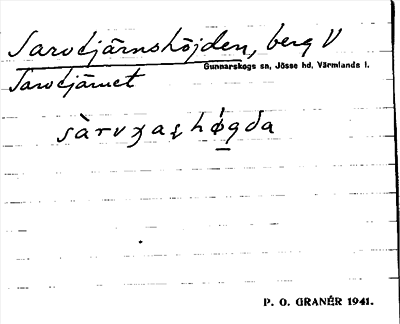 Sarvtjärnshöjden, berg V
Gunnarskogs sn, Jösse hd, Värmlands l.
Sarvtjärnet
sàrvʒaʂhǿgda
P. O. GRANÉR 1941.